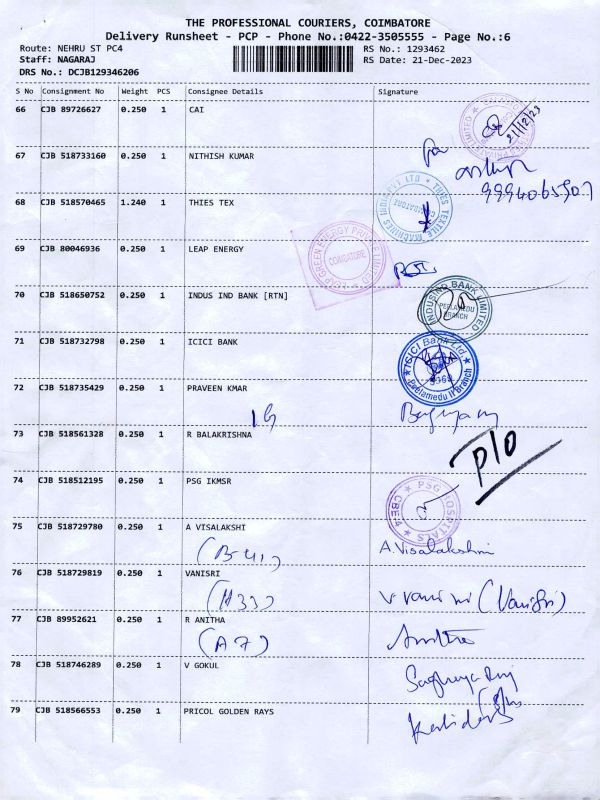 THE PROFESSIONAL COURIERS, COIMBATORE
Delivery Runsheet - PCP - Phone No.:0422-3505555 - Page No.:6
Route: NEHRU ST PC4 RS No.: 1293462
Staff: NAGARAJ RS Date: 21-Dec-2023
DRS No.: DCJB129346206
S No Consignment No Weight PCS Consignee Details Signature
66 CJB 89726627 0.250 1 CAI
21/12/23
67 CJB 518733160 0.250 1 NITHISH KUMAR
9994065907
68 CJB 518570465 1.240 1 THIES TEX
THIES TEXTILE MACHINES INDIA PVT LTD
COIMBATORE
69 CJB 80046936 0.250 1 LEAP ENERGY
LEAP GREEN ENERGY PRIVATE LIMITED
COIMBATORE
70 CJB 518650752 0.250 1 INDUS IND BANK [RTN]
INDUSIND BANK LIMITED
PEELAMEDU
BRANCH
71 CJB 518732798 0.250 1 ICICI BANK
ICICI Bank Ltd.
Peelamedu II Branch
72 CJB 518735429 0.250 1 PRAVEEN KMAR
73 CJB 518561328 0.250 1 R BALAKRISHNA
P/O
74 CJB 518512195 0.250 1 PSG IKMSR
PSG HOSPITALS
CBE-4
75 CJB 518729780 0.250 1 A VISALAKSHI
A.Visalakshmi
76 CJB 518729819 0.250 1 VANISRI
(H33) V Vanisri (Vanisri)
77 CJB 89952621 0.250 1 R ANITHA
(A7) Anitha
78 CJB 518746289 0.250 1 V GOKUL
79 CJB 518566553 0.250 1 PRICOL GOLDEN RAYS